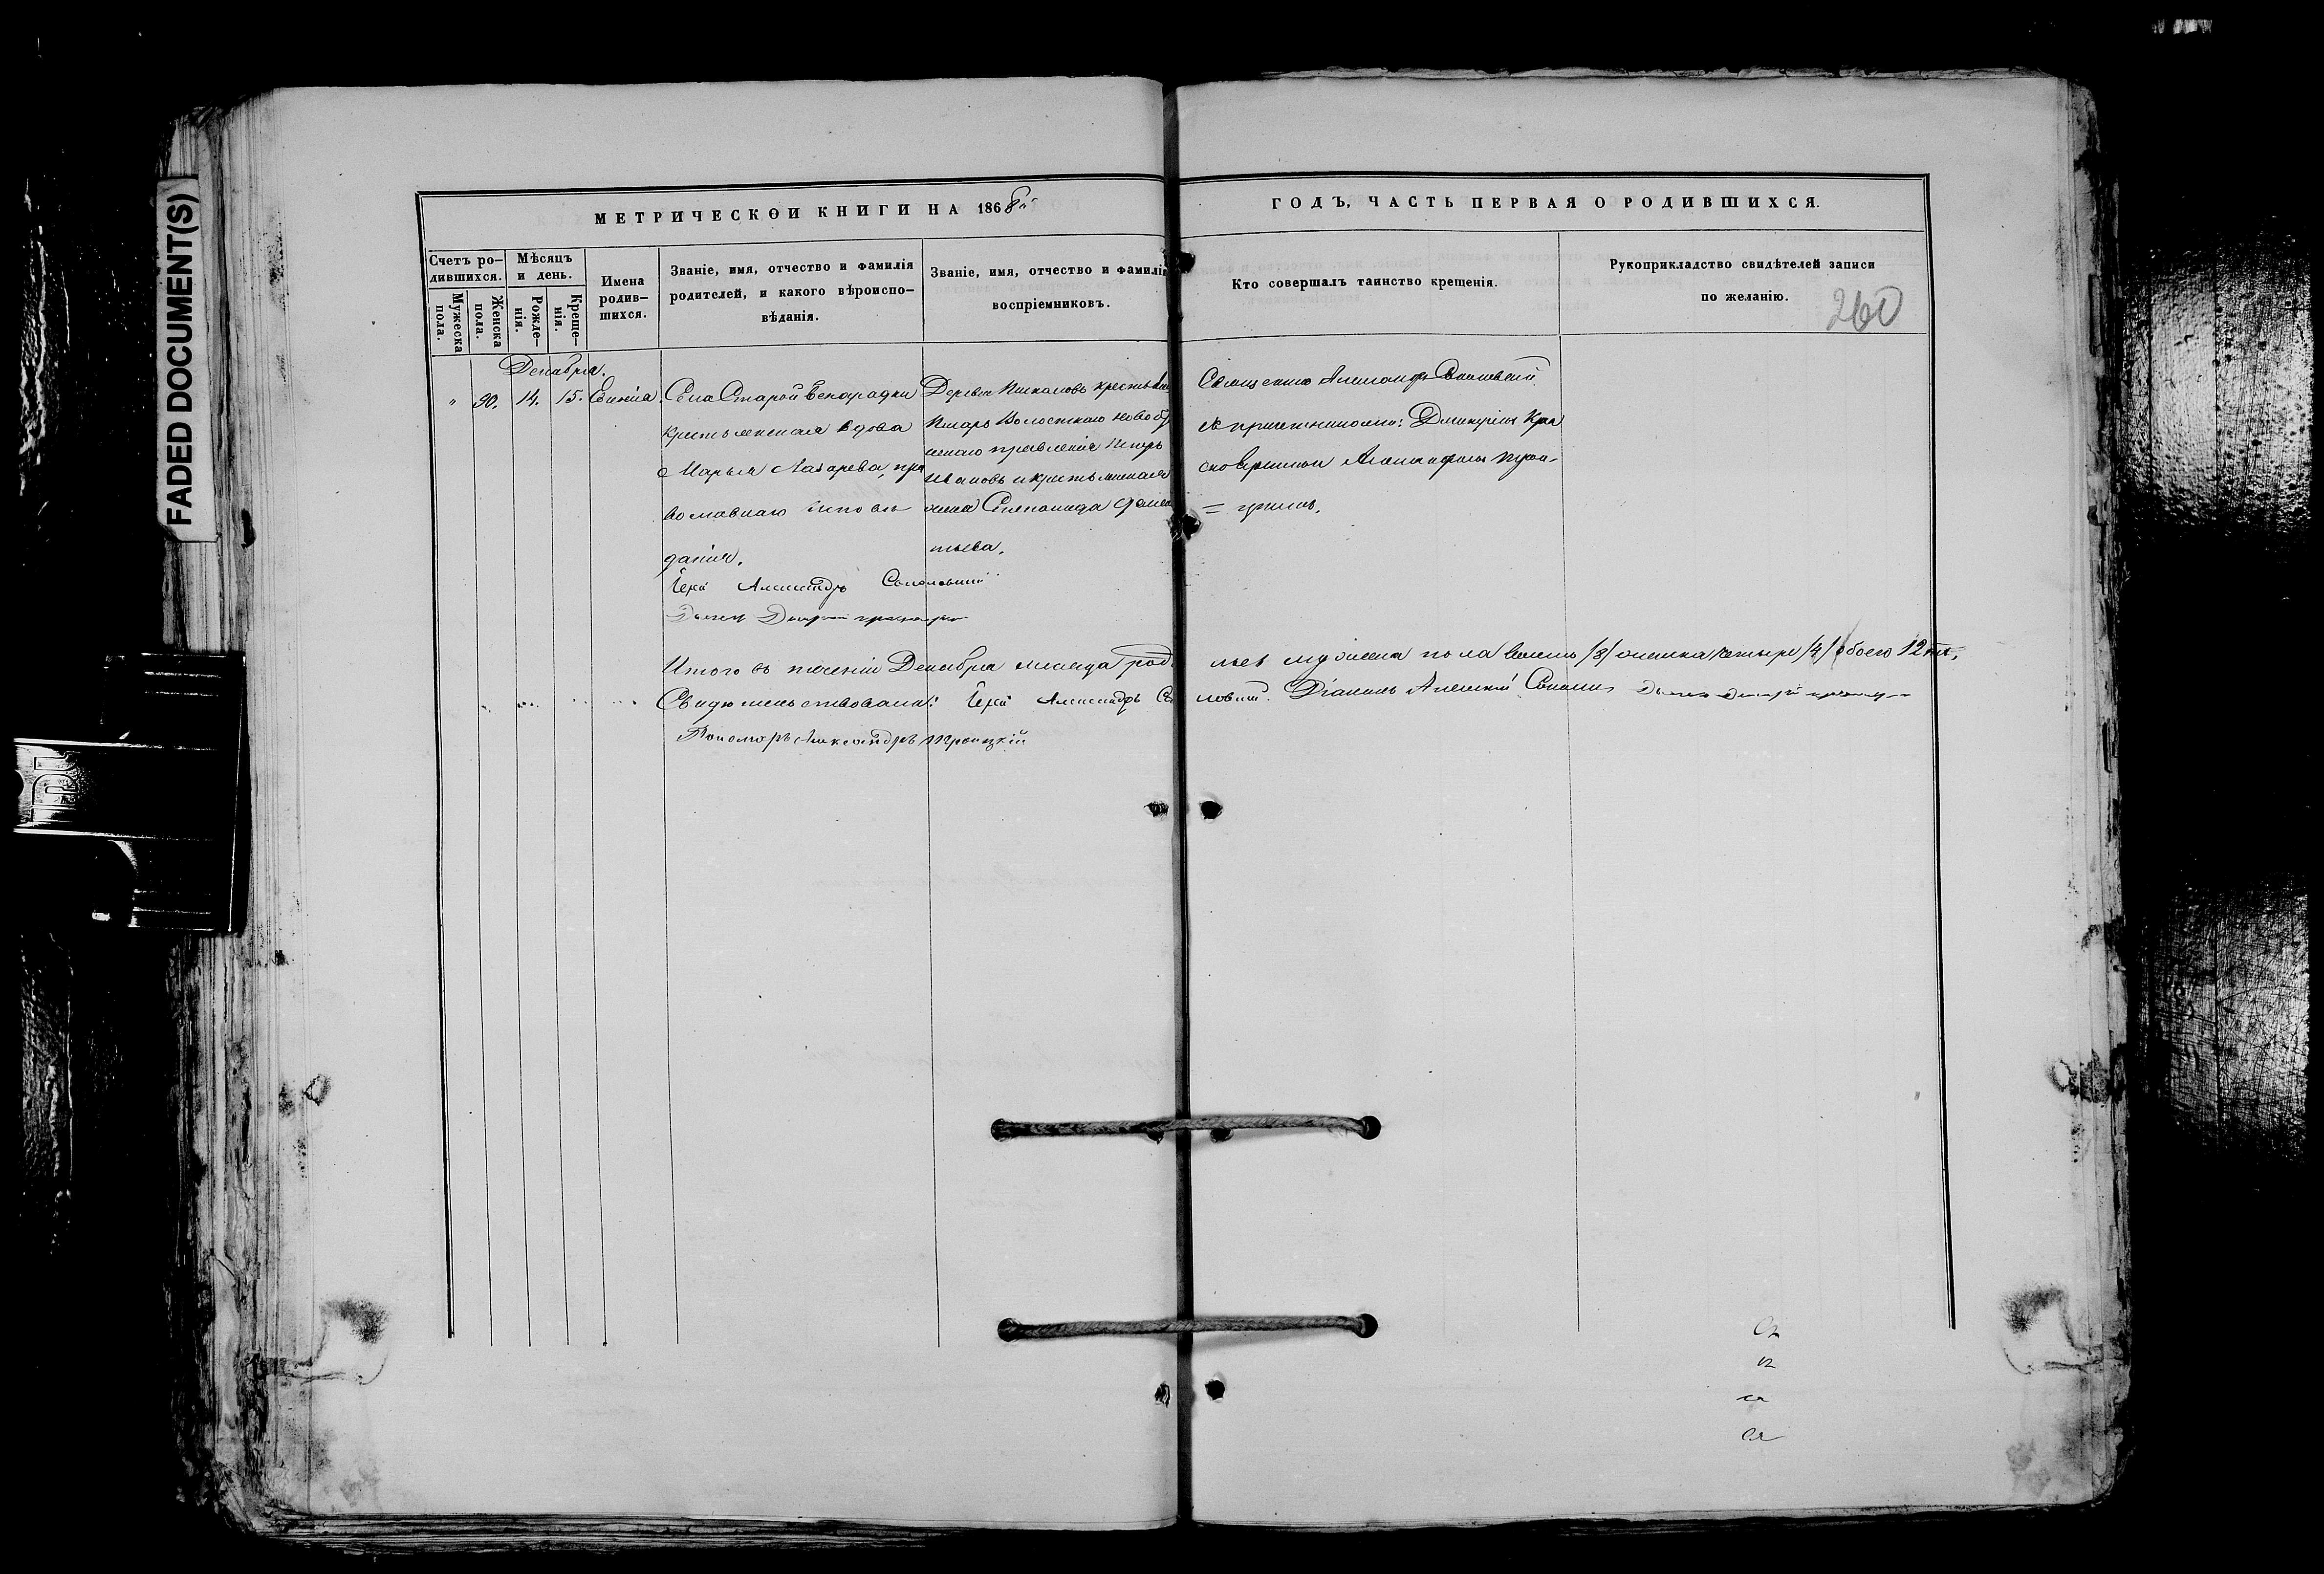 FADED DOCUMENT(S)
МЕТРИЧЕСКОЙ КНИГИ НА 1868й
ГОДЪ, ЧАСТЬ ПЕРВАЯ О РОДИВШИХСЯ.
Счетъ ро-
дившихся.
Мужеска
пола.
Женска
пола.
Мѣсяцъ
и день.
Рожде-
нія.
Креще-
нія.
Имена
родив-
шихся.
Званіе, имя, отчество и фамилія
родителей, и какого вѣроиспо-
вѣданія.
Званіе, имя, отчество и фамилія
воспріемниковъ.
Кто совершалъ таинство крещенія.
Рукоприкладство свидѣтелей записи
по желанію.
260
Декабря.
" 90. 14. 15.
Села Старой
крестьянская вдова
Марья Лазарева, пра
вославнаго исповѣ
данія.
Іерей Александръ Соколовскій
Деревни крестьян
Писарь Волостнаго
правленія Петръ
Ивановъ и крестьянская
жена Степанида
тьева.
Священникъ Александръ Соколовскій
съ причетниками: Дмитріемъ Кра
Александромъ Трои-
= цкимъ.
Итого въ теченіи Декабря месяца роди лось мужеска пола восемь /8/ женска четыре /4/ обоего 12ть.
Свидетельствовали: Іерей Александръ Соко ловскій. Діаконъ Алексей Дьячекъ Дмитрій
Пономарь Александръ Троицкій